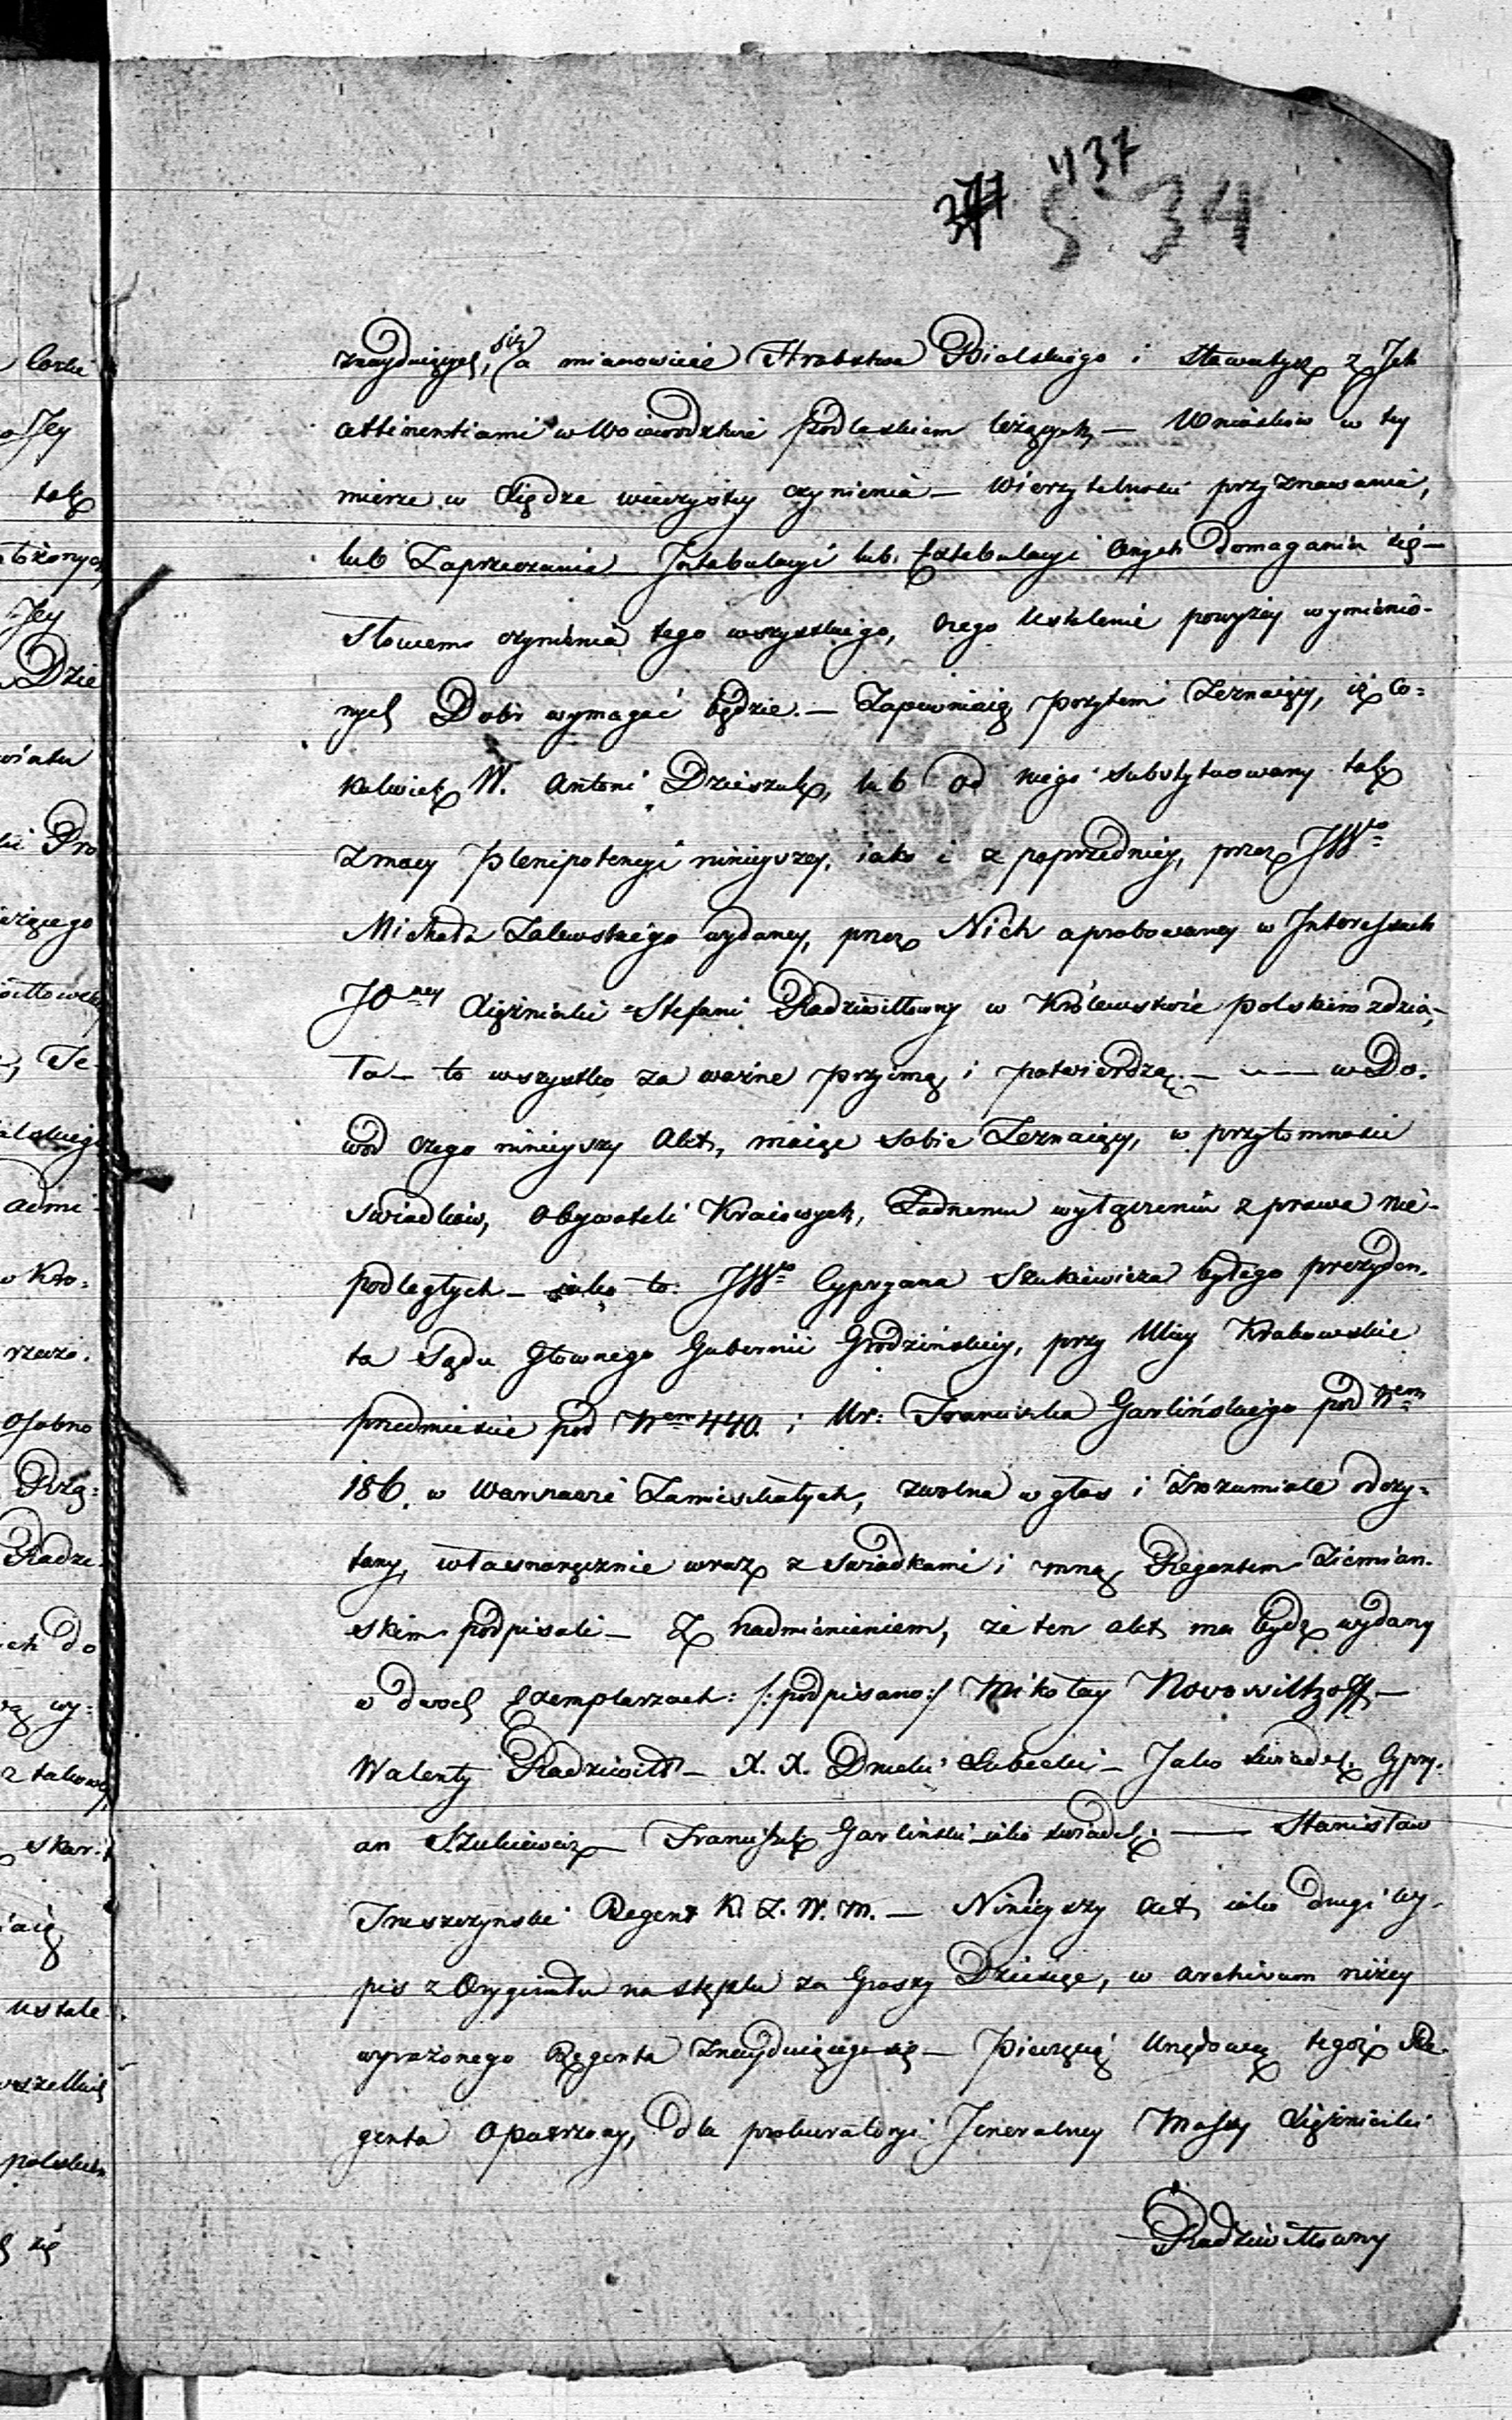 437
34
znayduiących się, a mianowicie Hrabstwa Bialskiego i Sławatycz z Jch
attinentiami w Woiewodztwie Podlaskiem leżących — Wniosków w tey
mierze w Xiędze wieczystey czynienia — Wierzytelności przyznawania,
lub Zaprzeczania Jntabulacyi lub Extabulacyi onych domagania się —
Słowem czynienia tego wszystkiego, czego Ustalenie powyżey wymienio-
nych Dobr wymagać będzie. — Zapewniaią przytem Zeznaiący, iż Co=
kolwiek W. Antoni Dzieszuk, lub od niego substytuowany tak
z mocy Plenipotencyi ninieyszey, iako i z poprzedniey, przez JWo
Michała Zalewskiego wydaney, przez Nich aprobowaney w Jnteressach
JOney Xiężniczki Stefani Radziwiłłowny w Królewstwie Polskiem zdzia-
ła — to wszystko za ważne przyimą i potwierdzą. — — w Do-
wod czego ninieyszy Akt, maiąc sobie Zeznaiący, w przytomności
swiadków, Obywateli Kraiowych, Żadnemu wyłączeniu z prawa nie-
podległych — iako to: JWo Cypryana Szukiewicza byłego prezyden-
ta Sądu Głownego Gubernii Grodzińskiey, przy Ulicy Krakowskie
przedmieście pod Nem 440. i Ur: Franciszka Garlińskiego pod Nem
186. w Warszawie Zamieszkałych, zwolna w głos i Zrozumiale odczy-
tany, własnoręcznie wraz z Swiadkami i mną Regentem Ziemian-
skim podpisali — Z nadmienieniem, że ten akt ma bydź wydany
w dwoch Exemplarzach: /:podpisano:/ Mikołay Novosiltzoff —
Walenty Radziwiłł — X. X. Drucki Lubecki — Jako swiadek Cypry-
an Szukiewicz — Franciszek Garliński iako swiadek; — Stanisław
Truszczynski Regent K. Z. W. M. — Ninieyszy Akt iako drugi wy-
pis z Oryginału na stęplu za Groszy Dziesięć, w archivum niżey
wyrażonego Regenta znayduiącego się — Pieczęcią Urzędową tegoż Re-
genta opatrzony, dla prokuratoryi Jeneralney Massy Xiężniczki
Radziwiłłowny